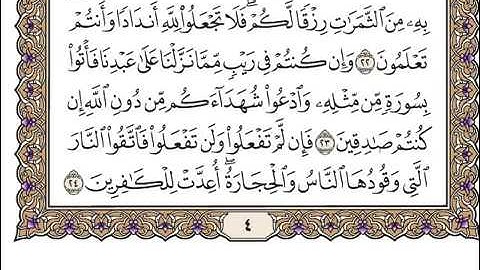 بِهِۦ مِنَ ٱلثَّمَرَٰتِ رِزۡقٗا لَّكُمۡۖ فَلَا تَجۡعَلُواْ لِلَّهِ أَندَادٗا وَأَنتُمۡ
تَعۡلَمُونَ ٢٢ وَإِن كُنتُمۡ فِي رَيۡبٖ مِّمَّا نَزَّلۡنَا عَلَىٰ عَبۡدِنَا فَأۡتُواْ
بِسُورَةٖ مِّن مِّثۡلِهِۦ وَٱدۡعُواْ شُهَدَآءَكُم مِّن دُونِ ٱللَّهِ إِن
كُنتُمۡ صَٰدِقِينَ ٢٣ فَإِن لَّمۡ تَفۡعَلُواْ وَلَن تَفۡعَلُواْ فَٱتَّقُواْ ٱلنَّارَ
ٱلَّتِي وَقُودُهَا ٱلنَّاسُ وَٱلۡحِجَارَةُۖ أُعِدَّتۡ لِلۡكَٰفِرِينَ ٢٤
٤